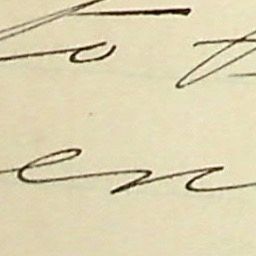 to t
en